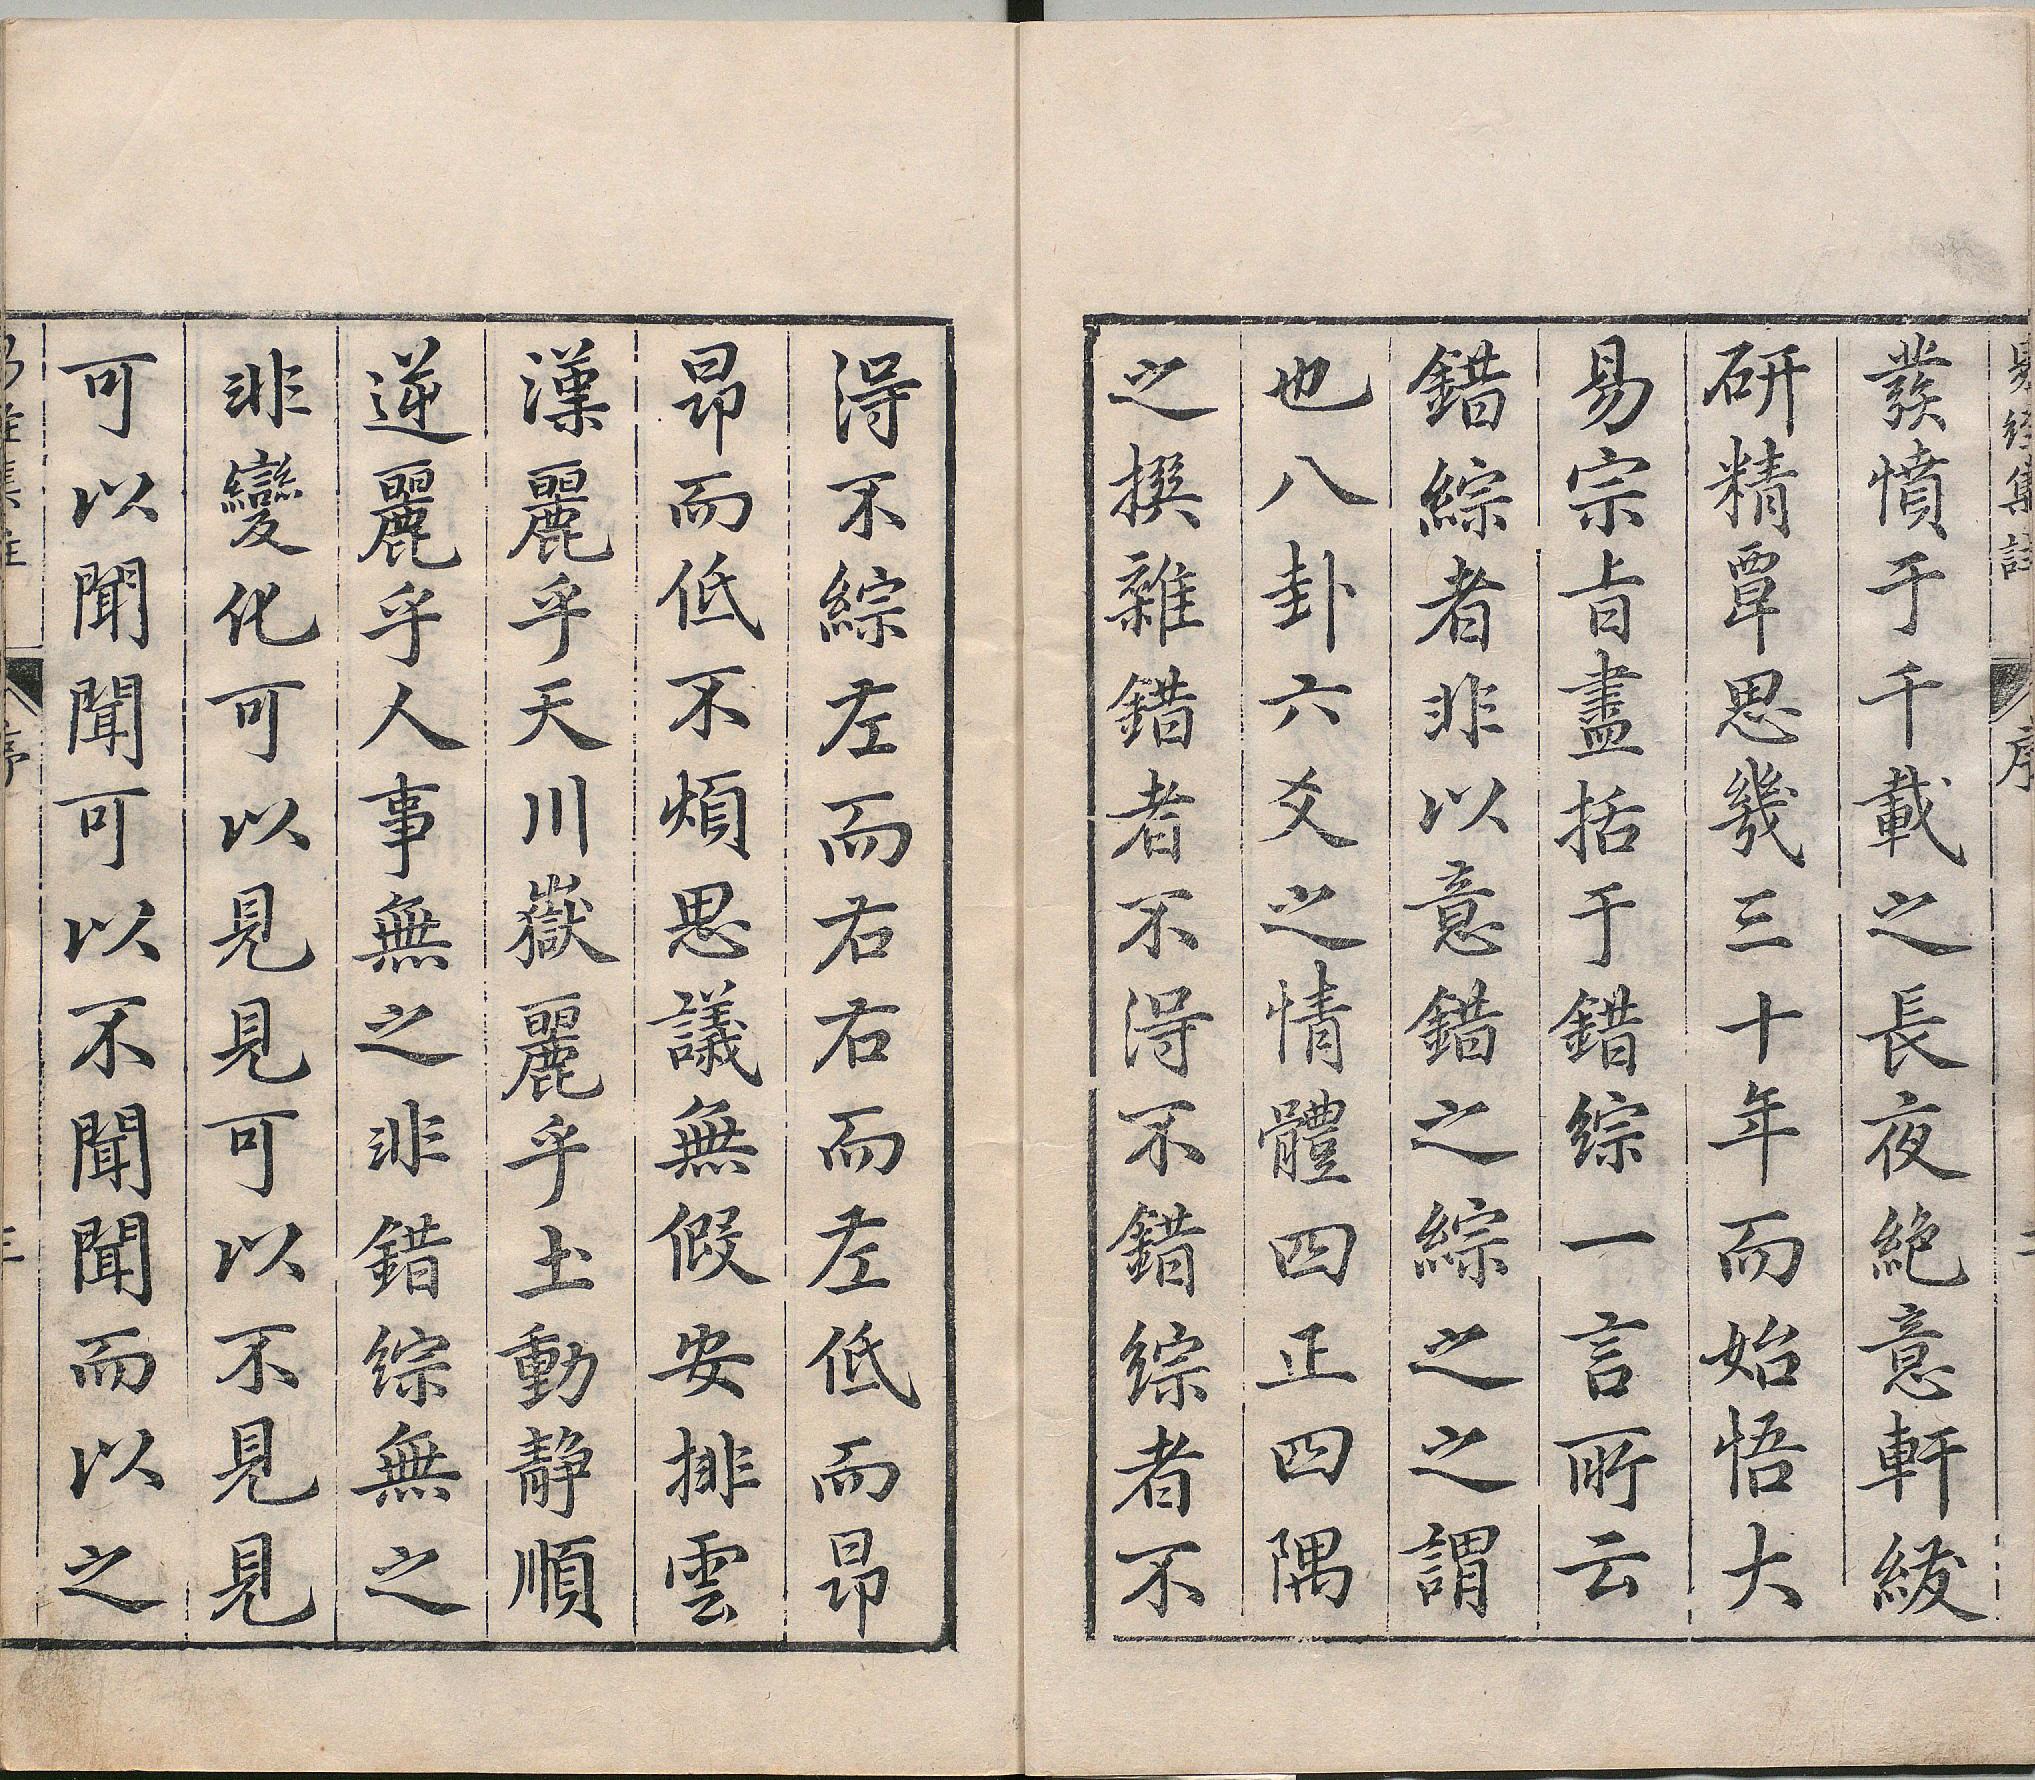 易經集註 序 二
發憤于千載之長夜絶意軒紱
研精覃思幾三十年而始悟大
易宗旨盡括于錯綜一言所云
錯綜者非以意錯之綜之之謂
也八卦六爻之情體四正四隅
之撰雜錯者不得不錯綜者不
得不綜左而右右而左低而昂
昂而低不煩思議無假安排雲
漢麗乎天川嶽麗乎土動靜順
逆麗乎人事無之非錯綜無之
非變化可以見見可以不見見
可以聞聞可以不聞聞而以之
序 三